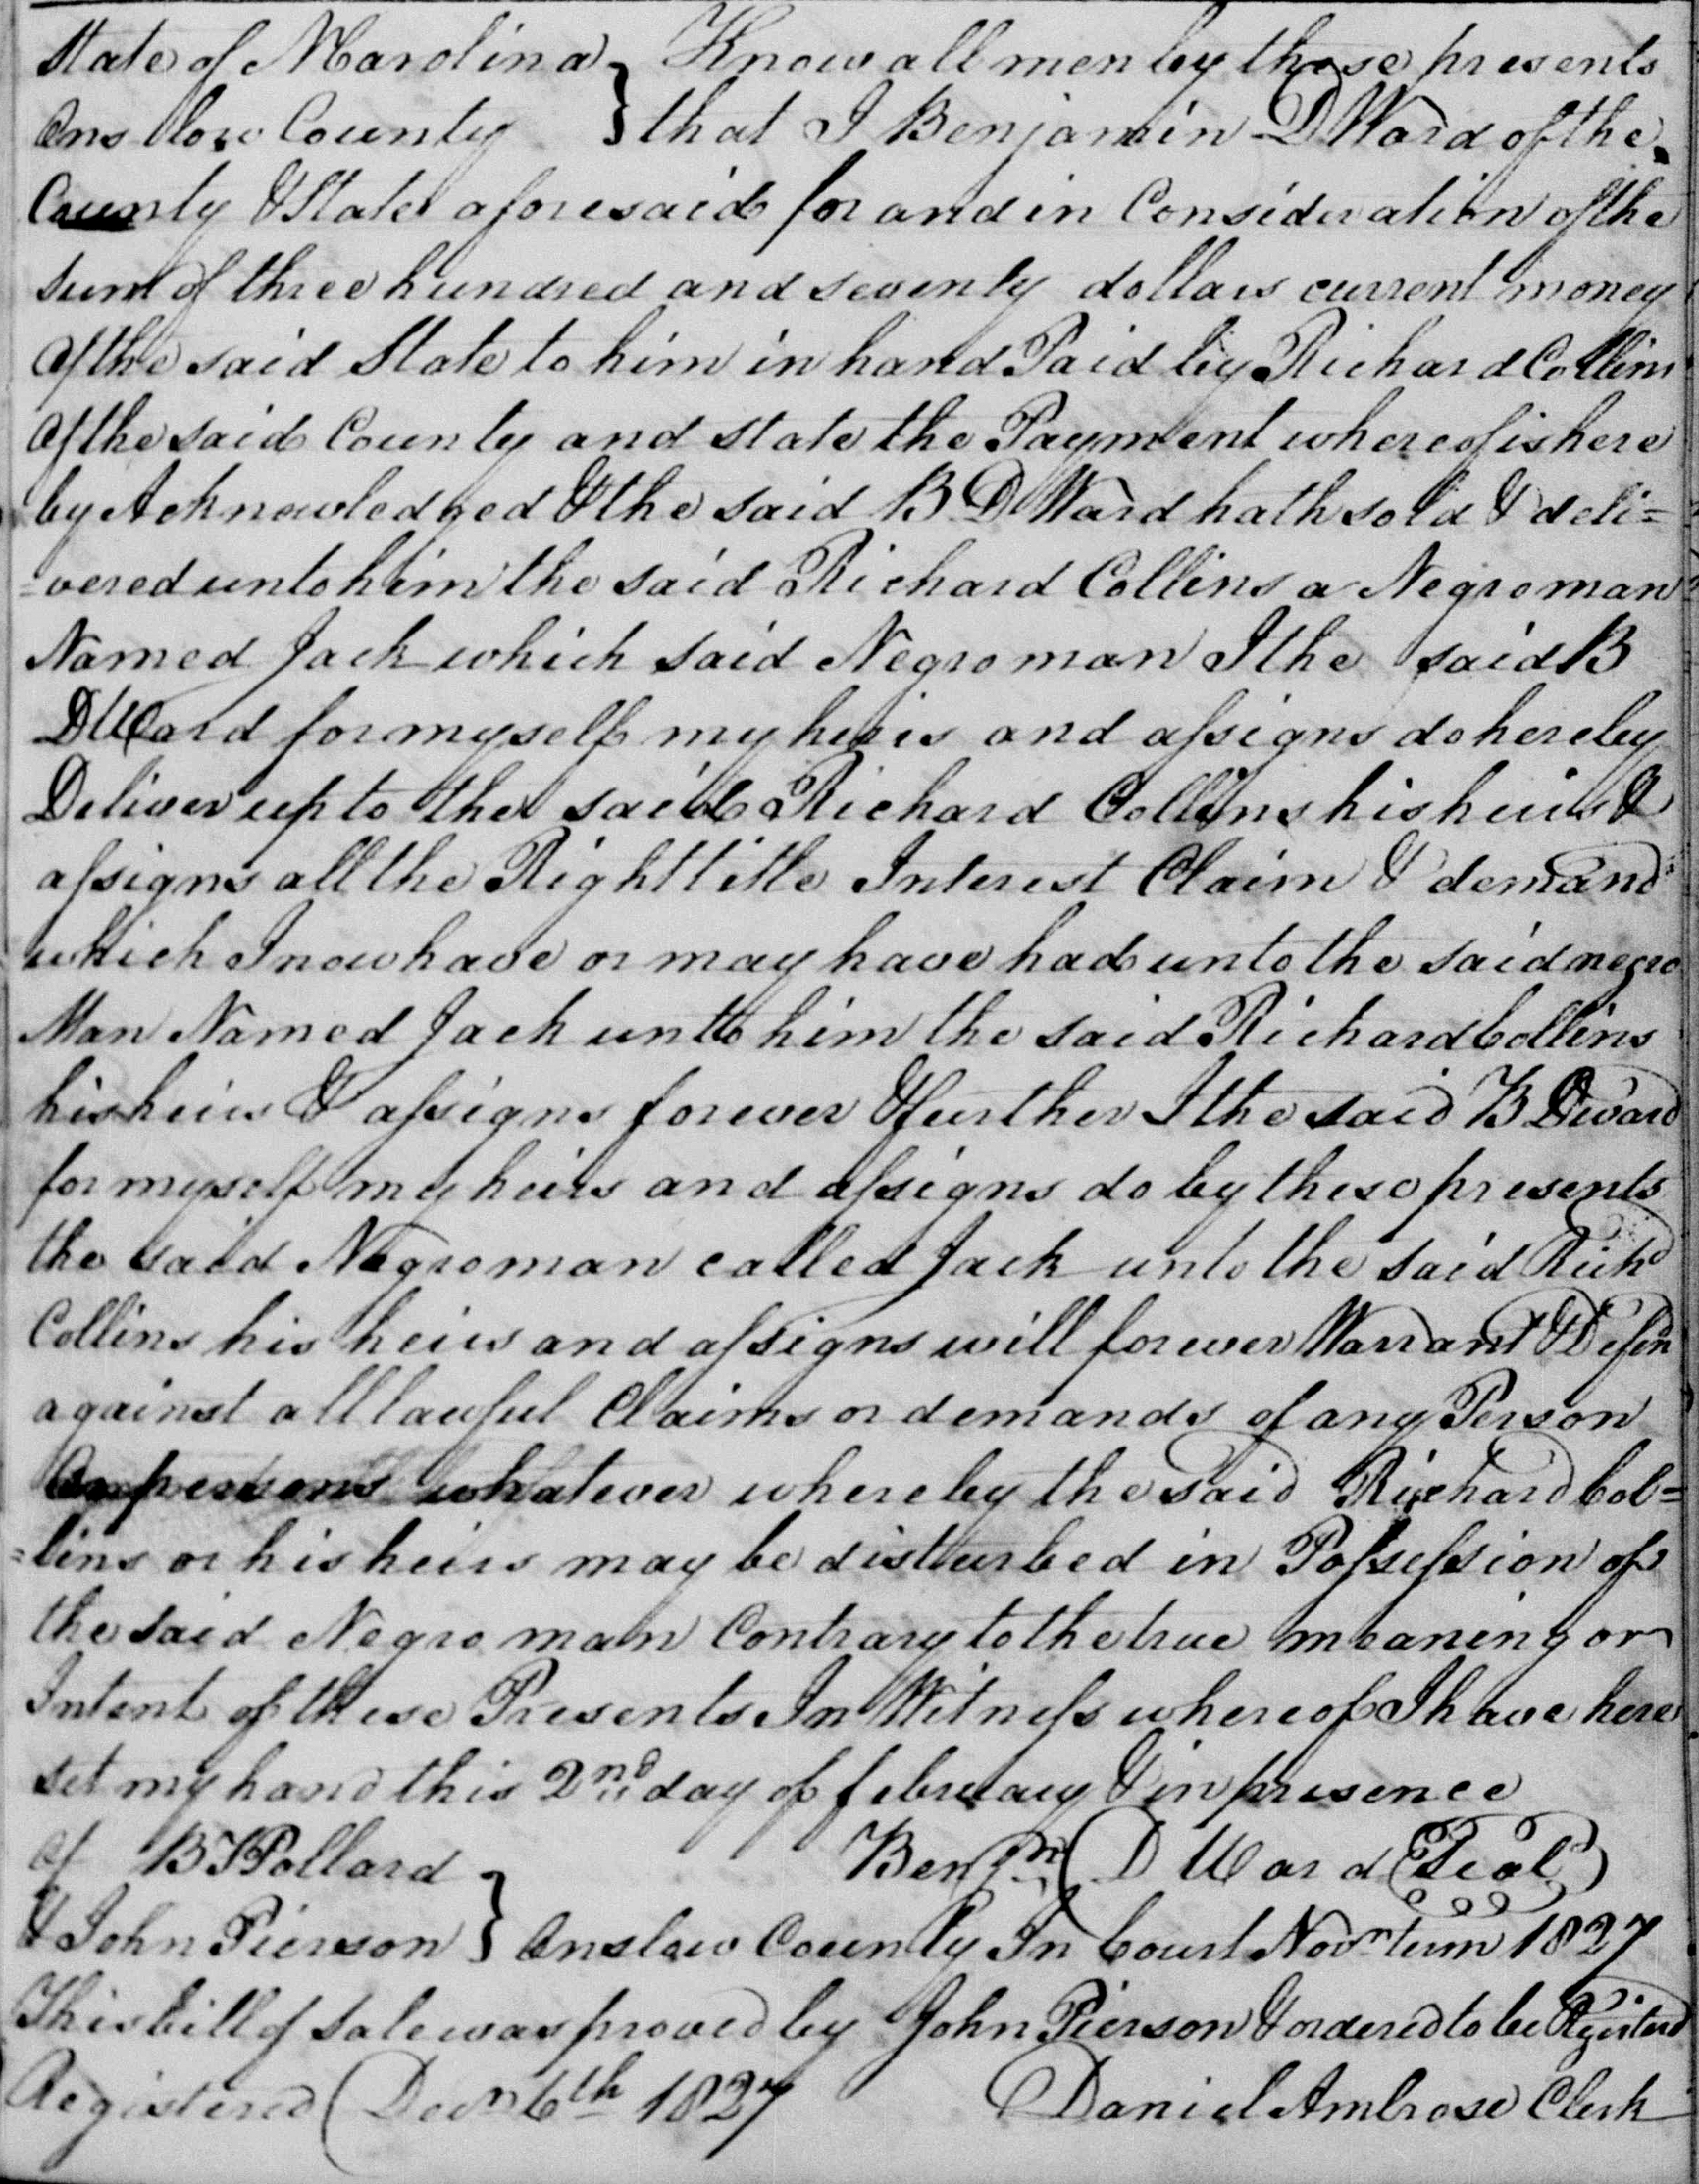 State of N Carolina } Know all men by these presents
Onslow County } that I Benjamin D Ward of the
County & State aforesaid for and in Consideration of the
sum of three hundred and seventy dollars current money
of the said State to him in hand Paid by Richard Collins
of the said County and state the Payment whereof is here
by Acknowledged & the said B D Ward hath sold & deli=
=vered unto him the said Richard Collins a Negro man
Named Jack which said Negro man I the said B
D Ward for myself my heirs and assigns do hereby
Deliver up to the said Richard Collins his heirs &
assigns all the Right title Interest Claim & demand
which I now have or may have had unto the said negro
Man Named Jack unto him the said Richard Collins
his heirs & assigns forever & further I the said B D Ward
for myself my heirs and assigns do by these presents
the said Negro man called Jack unto the said Richd
Collins his heirs and assigns will forever Warrant & Defen
against all lawful Claims or demands of any Person
or persons whatever whereby the said Richard Col=
=lins or his heirs may be disturbed in Possession of
the said Negro man Contrary to the true meaning or
Intent of these Presents In Witness whereof I have here
set my hand this 2nd day of february & in presence
of B Pollard } Benjn D Ward (Seal)
& John Pierson } Onslow County In Court Novr term 1827
This bill of sale was proved by John Pierson & ordered to be Registerd
Registered Decr 6th 1827 Daniel Ambrose Clerk